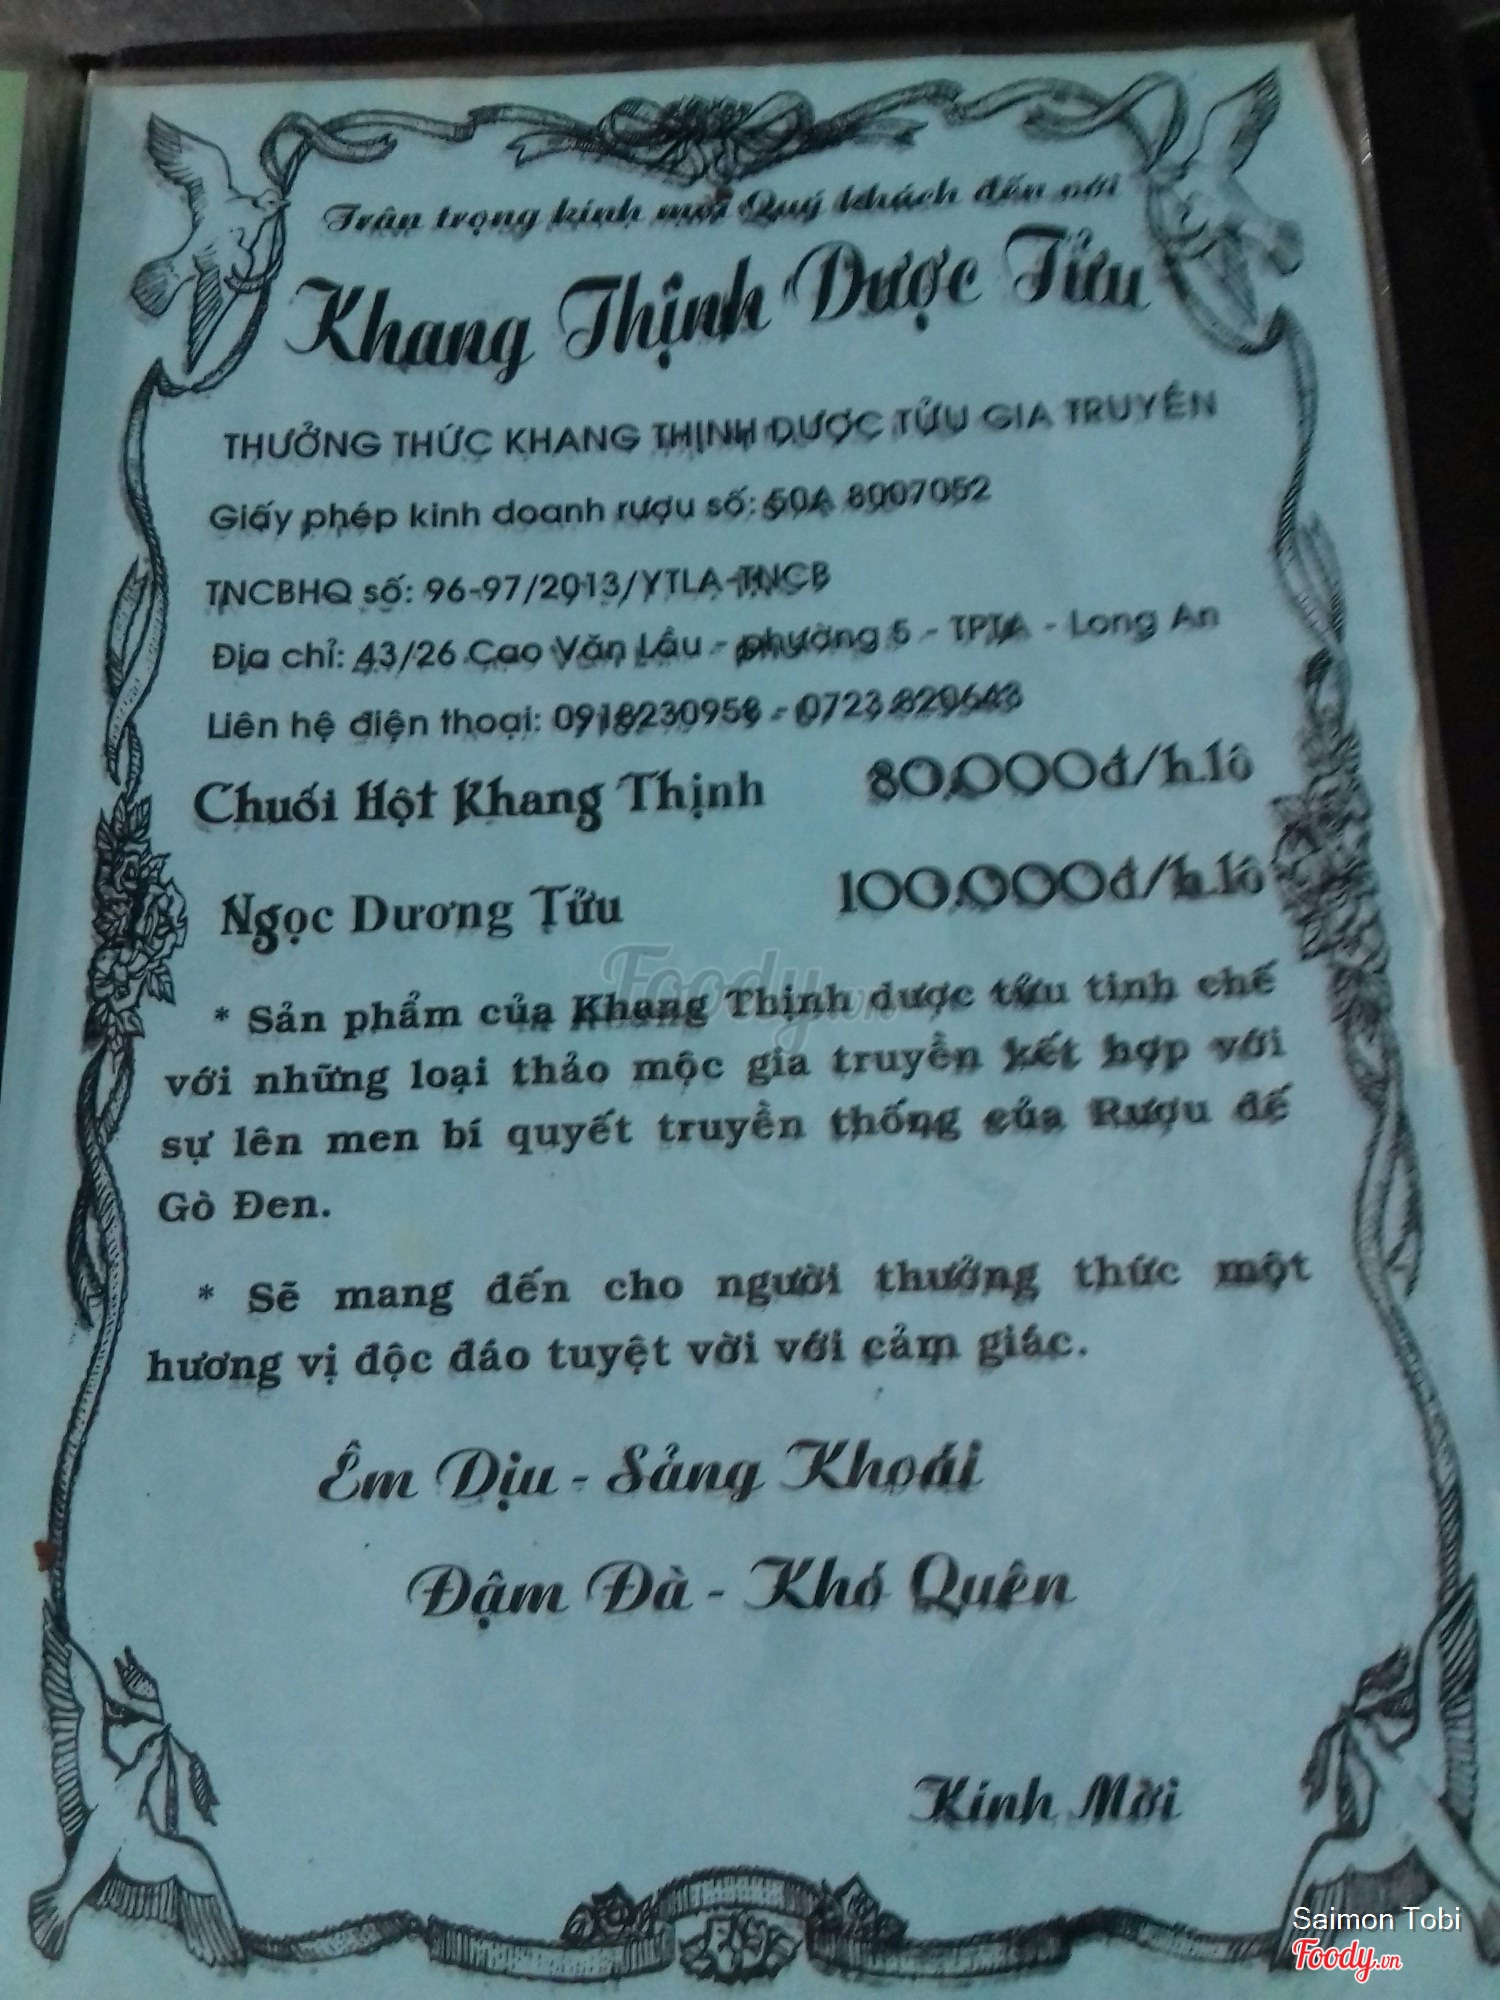 Trân trọng kính mời Quý khách đến với
Khang Thịnh Dược Tửu
THƯỞNG THỨC KHANG THỊNH DƯỢC TỬU GIA TRUYỀN
Giấy phép kinh doanh rượu số: 50A 8007052
TNCBHQ số: 96-97/2013/YTLA-TNCB
Địa chỉ: 43/26 Cao Văn Lầu - phường 5 - TPTA - Long An
Liên hệ điện thoại: 0918230958 - 0723.829643
Chuối Hột Khang Thịnh 80.000đ/h.lô
Ngọc Dương Tửu 100.000đ/h.lô
Foody.vn
* Sản phẩm của Khang Thịnh dược tửu tinh chế
với những loại thảo mộc gia truyền kết hợp với
sự lên men bí quyết truyền thống của Rượu đế
Gò Đen.
* Sẽ mang đến cho người thưởng thức một
hương vị độc đáo tuyệt vời với cảm giác.
Êm Dịu - Sảng Khoái
Đậm Đà - Khó Quên
Kính Mời
Saimon Tobi
Foody.vn